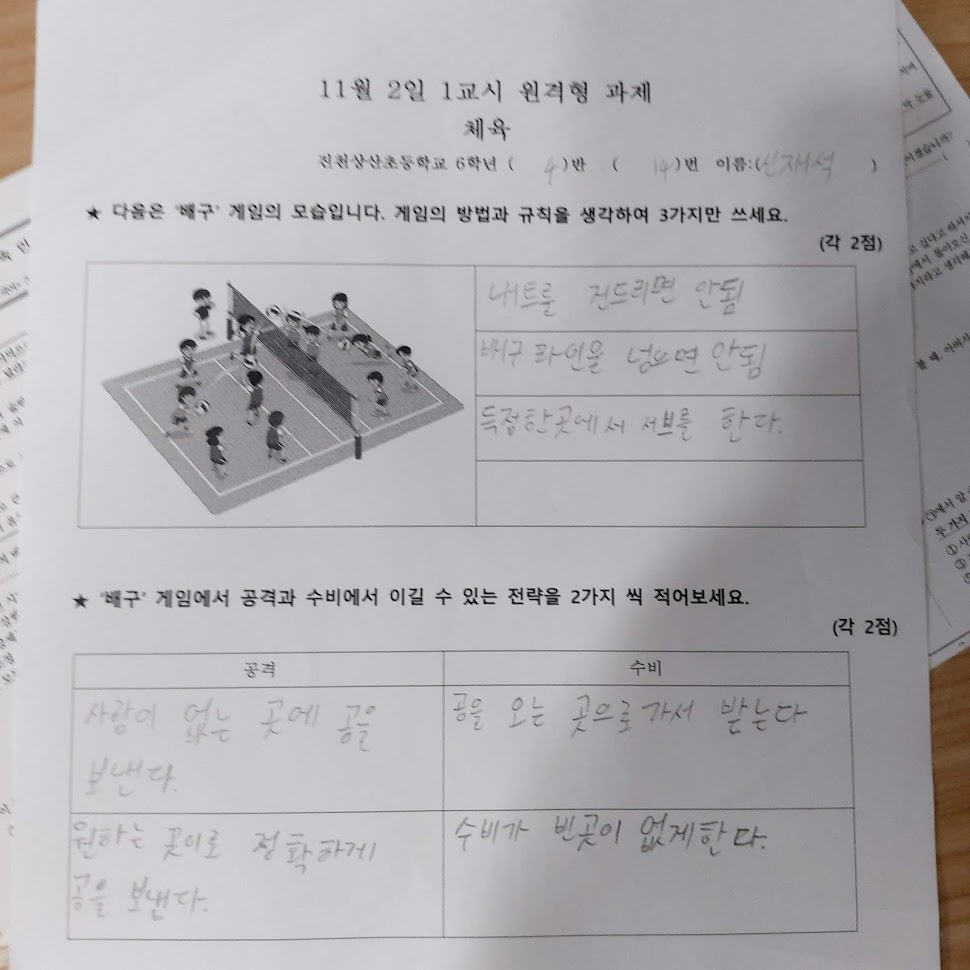 11월 2일 1교시 원격형 과제
체육
진천상산초등학교 6학년 ( 4 )반 ( 14 )번 이름:(신재석 )
★ 다음은 '배구' 게임의 모습입니다. 게임의 방법과 규칙을 생각하여 3가지만 쓰세요.
(각 2점)
네트를 건드리면 안됨
배구 라인을 넘으면 안됨
득점한곳에서 서브를 한다.
★ '배구' 게임에서 공격과 수비에서 이길 수 있는 전략을 2가지 씩 적어보세요.
(각 2점)
공격 수비
사람이 없는 곳에 공을
보낸다.
공을 오는 곳으로가서 받는다
원하는 곳이로 정확하게
공을 보낸다.
수비가 빈곳이 없게한다.